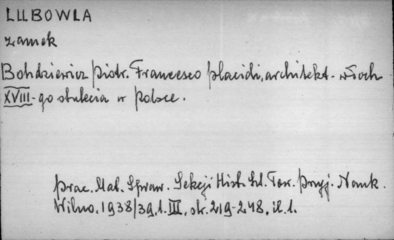 LUBOWLA
zamek
Bohdziewicz Piotr. Francesco Placidi, architekt - włoch
XVIII-go stulecia w Polsce.
Prac. Mat. Spraw. Sekcji Hist. Szt. Tow. Przyj. Nauk.
Wilno, 1938/39, t. III, str. 219-248, il. 1.